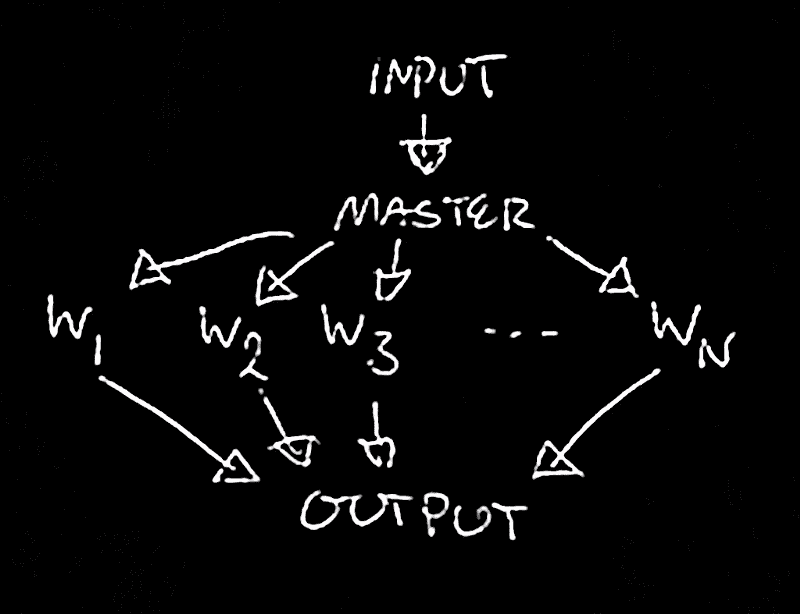 INPUT
MASTER
W1 W2 W3 --- WN
OUTPUT